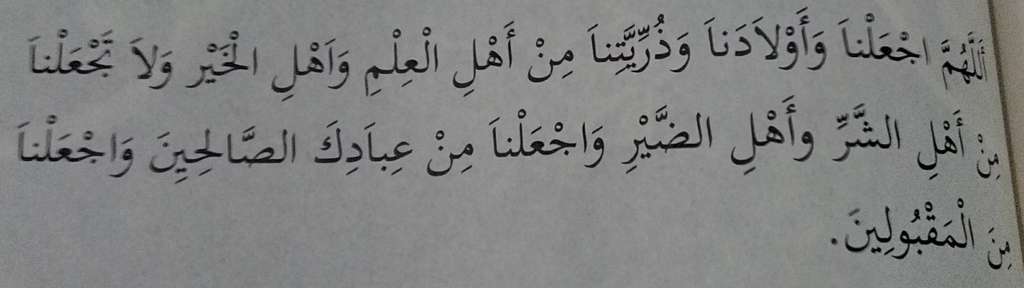 اَللَّهُمَّ اجْعَلْناَ وَأَوْلاَدَناَ وَذُرِّيَّتِناَ مِنْ أَهْلِ الْعِلْمِ وَاَهْلِ الْخَيْر وَلاَ تَجْعَلْناَ
مِنْ أَهْلِ الشَّرِّ وأَهْلِ الضَّيْرِ وَاجْعَلْناَ مِنْ عِباَدِكَ الصَّالِحِيِنَ وَاجْعَلْناَ
مِنَ الْمَقْبُولِينَ.